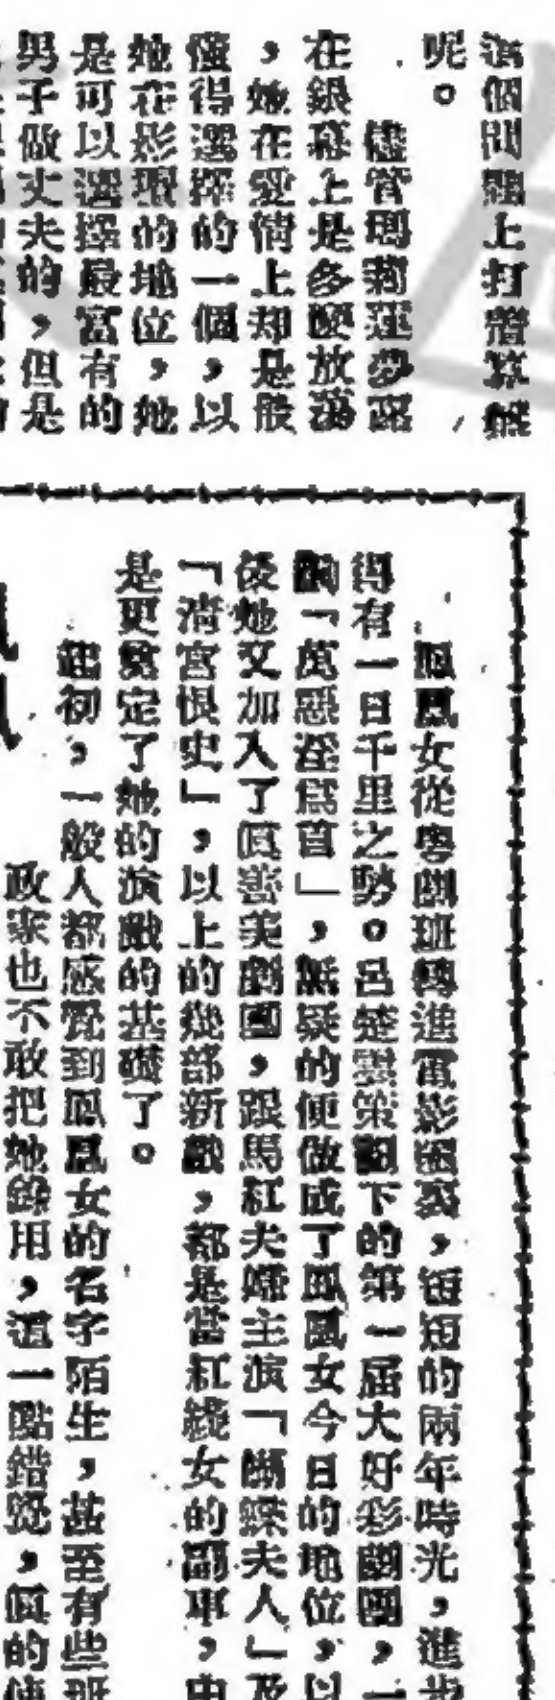 這個問題上打着算盤
呢。
儘管瑪莉蓮夢露
在銀幕上是多麼放蕩
，她在愛情上却是很
懂得選擇的一個，以
她在影壇的地位，她
是可以選擇最富有的
男子做丈夫的，但是
鳳凰女從粵劇班轉進電影圈裏，短短的兩年時光，進步
得有一日千里之勢。呂楚雲策劃下的第一屆大好彩劇團，一
齣「萬惡淫爲首」，無疑的便做成了鳳凰女今日的地位，以
後她又加入了眞善美劇團，跟馬紅夫婦主演「蝴蝶夫人」及
「淸宮恨史」，以上的幾部新戲，都是當紅綫女的副車，由
是更奠定了她的演戲的基礎了。
起初，一般人都感覺到鳳凰女的名字陌生，甚至有些班
政家也不敢把她錄用，這一點錯覺，眞的使